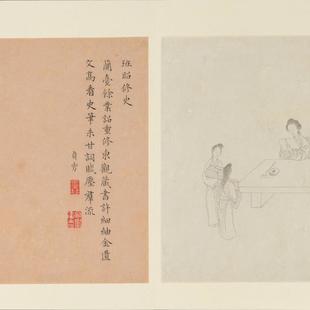 班昭修史
蘭臺餘業詔重修東觀藏書許細紬金匱
文高看史筆未甘詞賦壓羣流